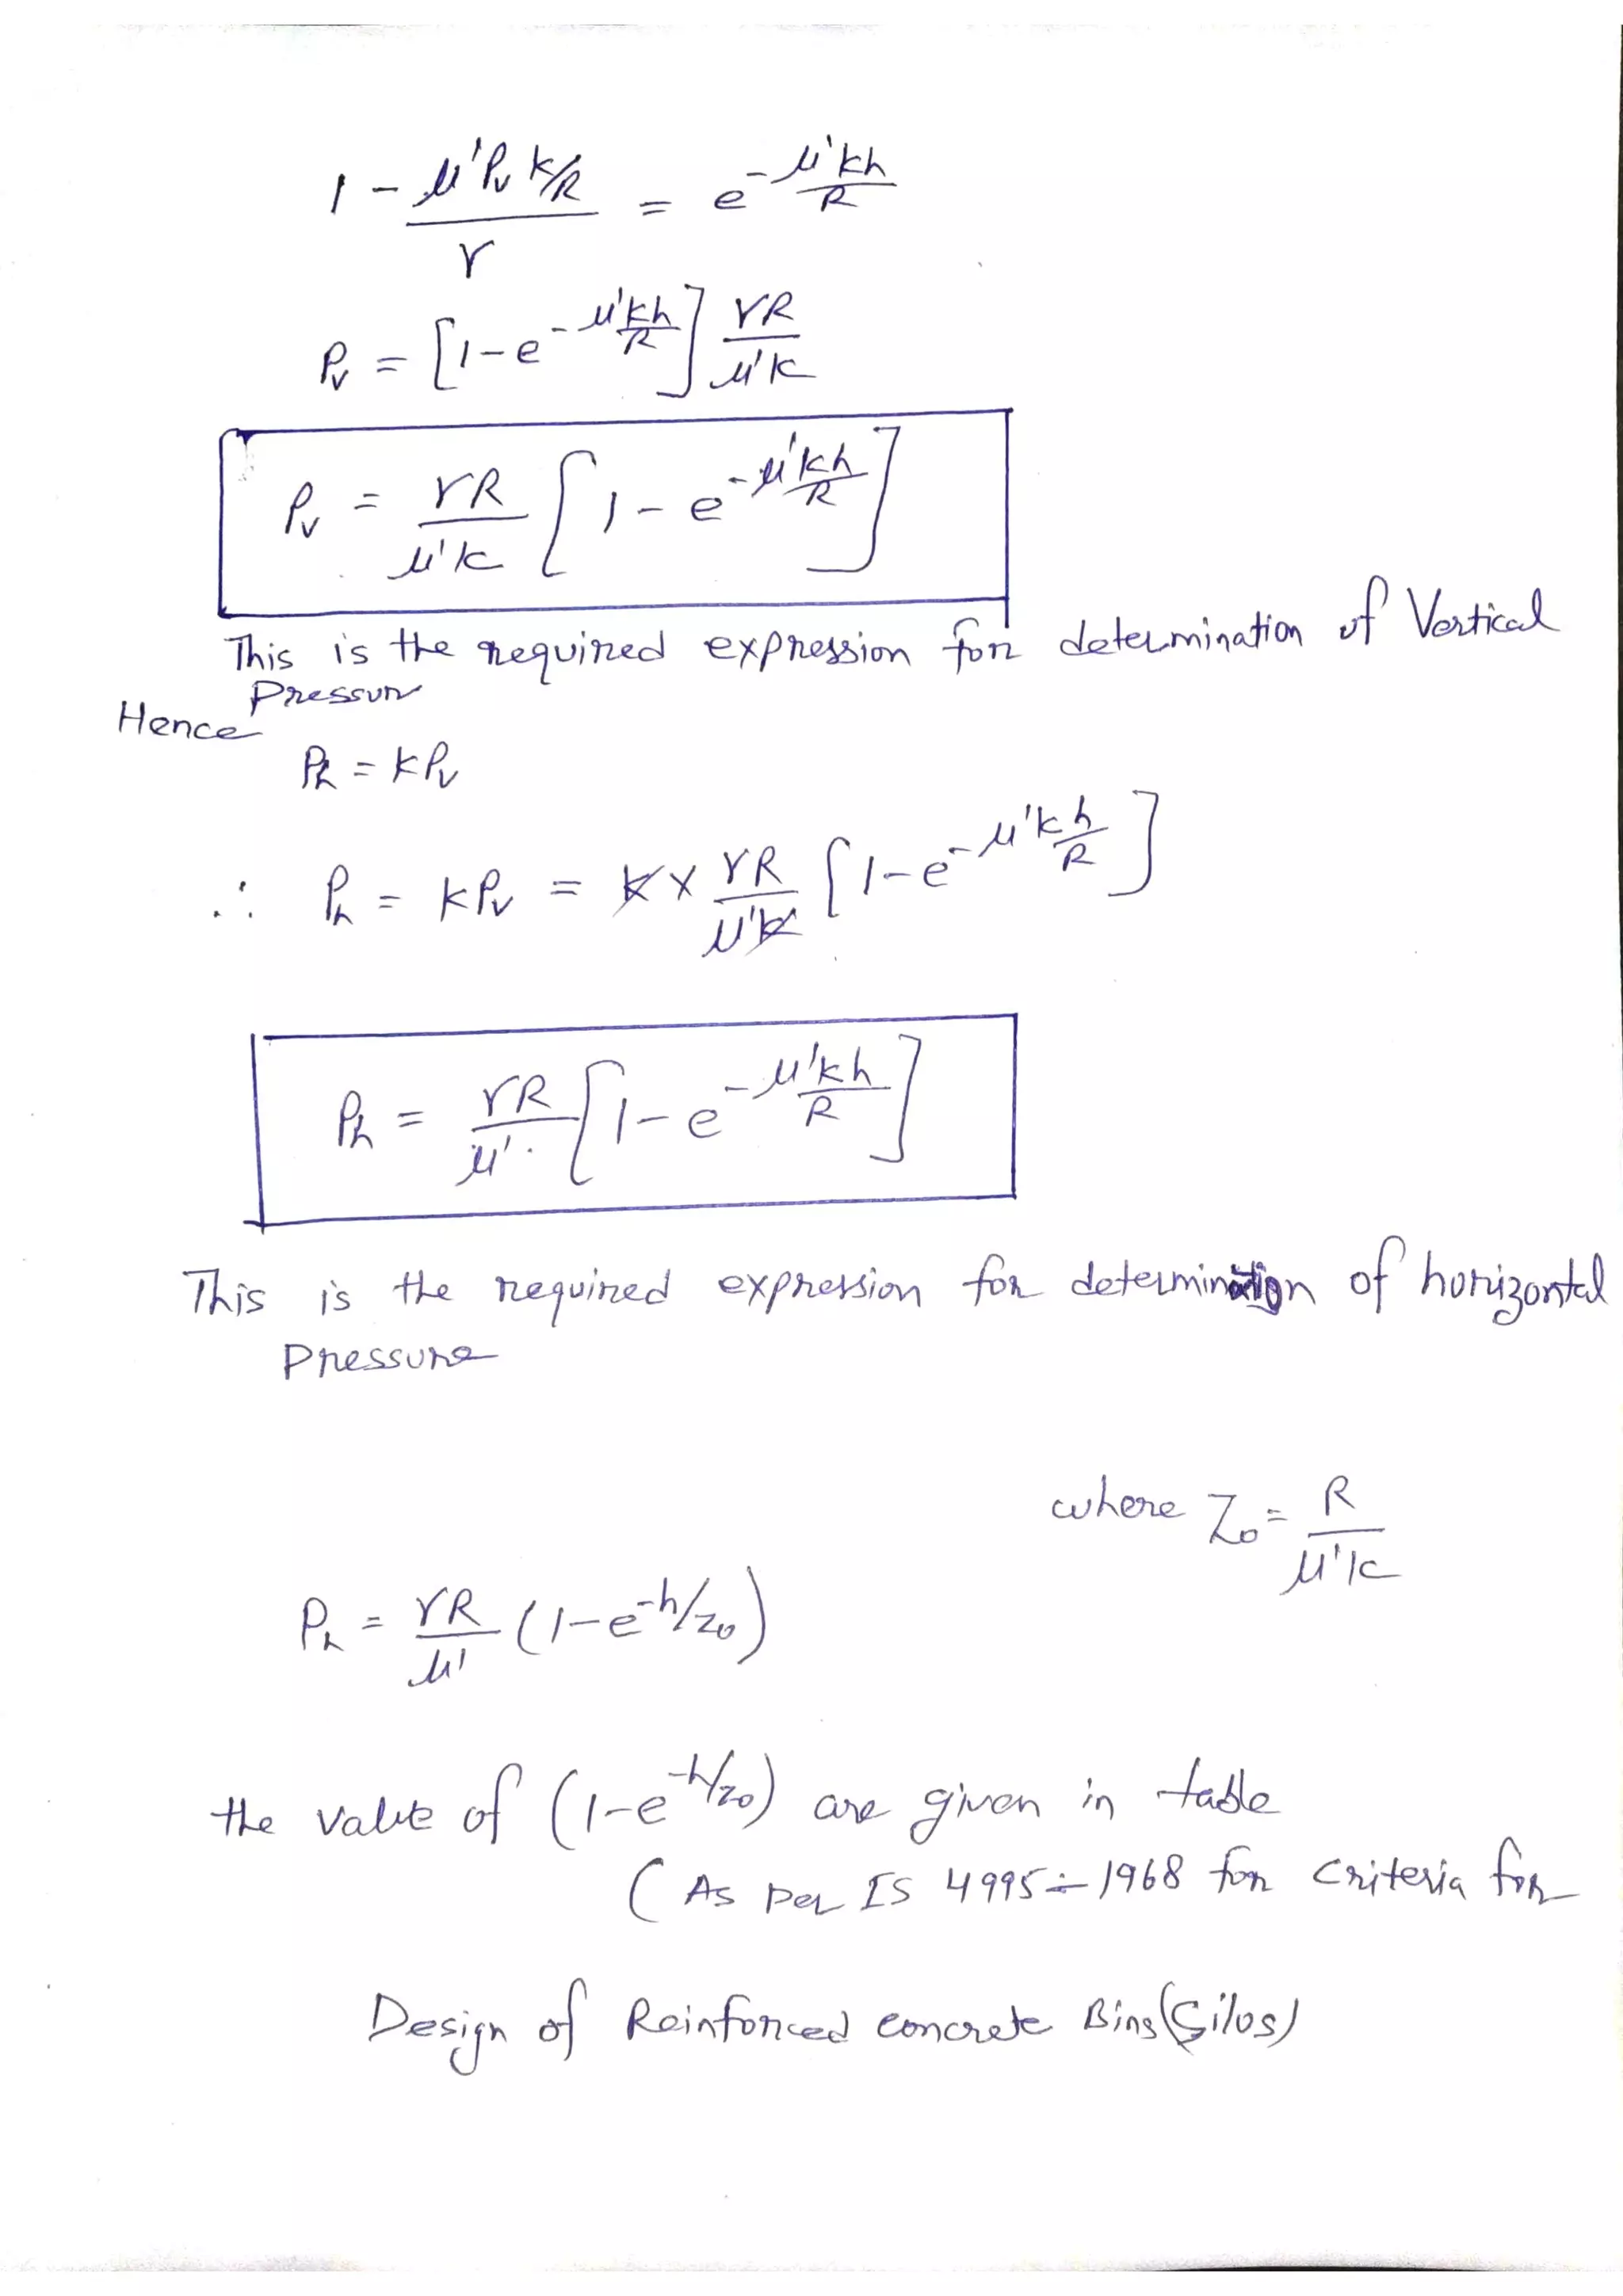 1 - μ'Pv k/R / γ = e^(-μ'kh/R)
Pv = [1-e^(-μ'kh/R)] γR/μ'k
Pv = γR/μ'k [1-e^(-μ'kh/R)]
This is the required expression for determination of Vertical
Pressure
Hence
Ph = kPv
∴ Ph = kPv = k x γR/μ'k [1-e^(-μ'kh/R)]
Ph = γR/μ' [1-e^(-μ'kh/R)]
This is the required expression for determination of horizontal
Pressure
where Z₀ = R/μ'k
Ph = γR/μ' (1-e^(-h/z₀))
the value of (1-e^(-h/z₀)) are given in table
(As per IS 4995 - 1968 for criteria for
Design of Reinforced concrete Bins (Silos)